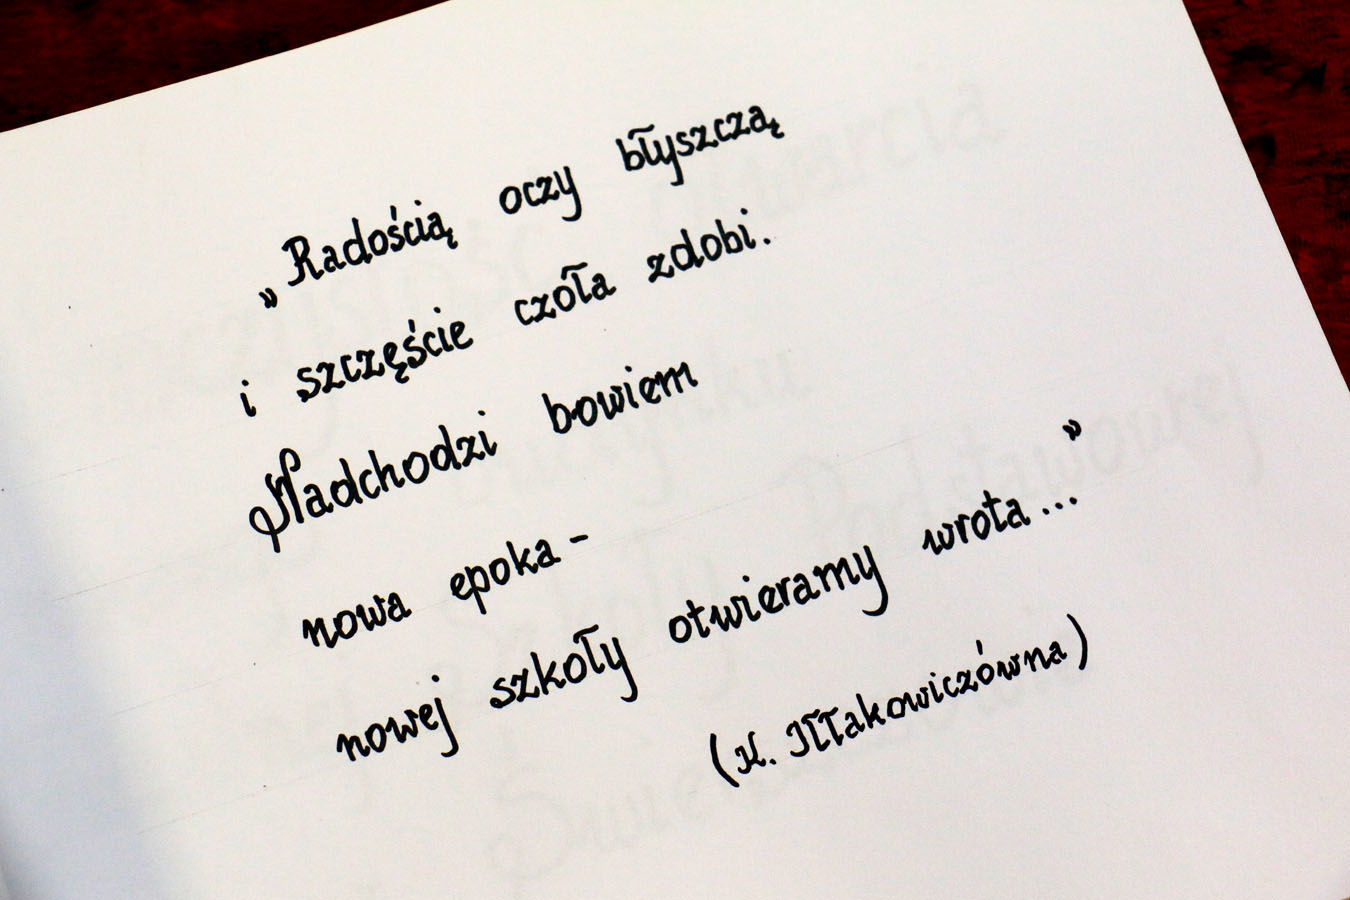 „Radością oczy błyszczą
i szczęście czoła zdobi.
Nadchodzi bowiem
nowa epoka -
nowej szkoły otwieramy wrota..."
(K. Iłłakowiczówna)